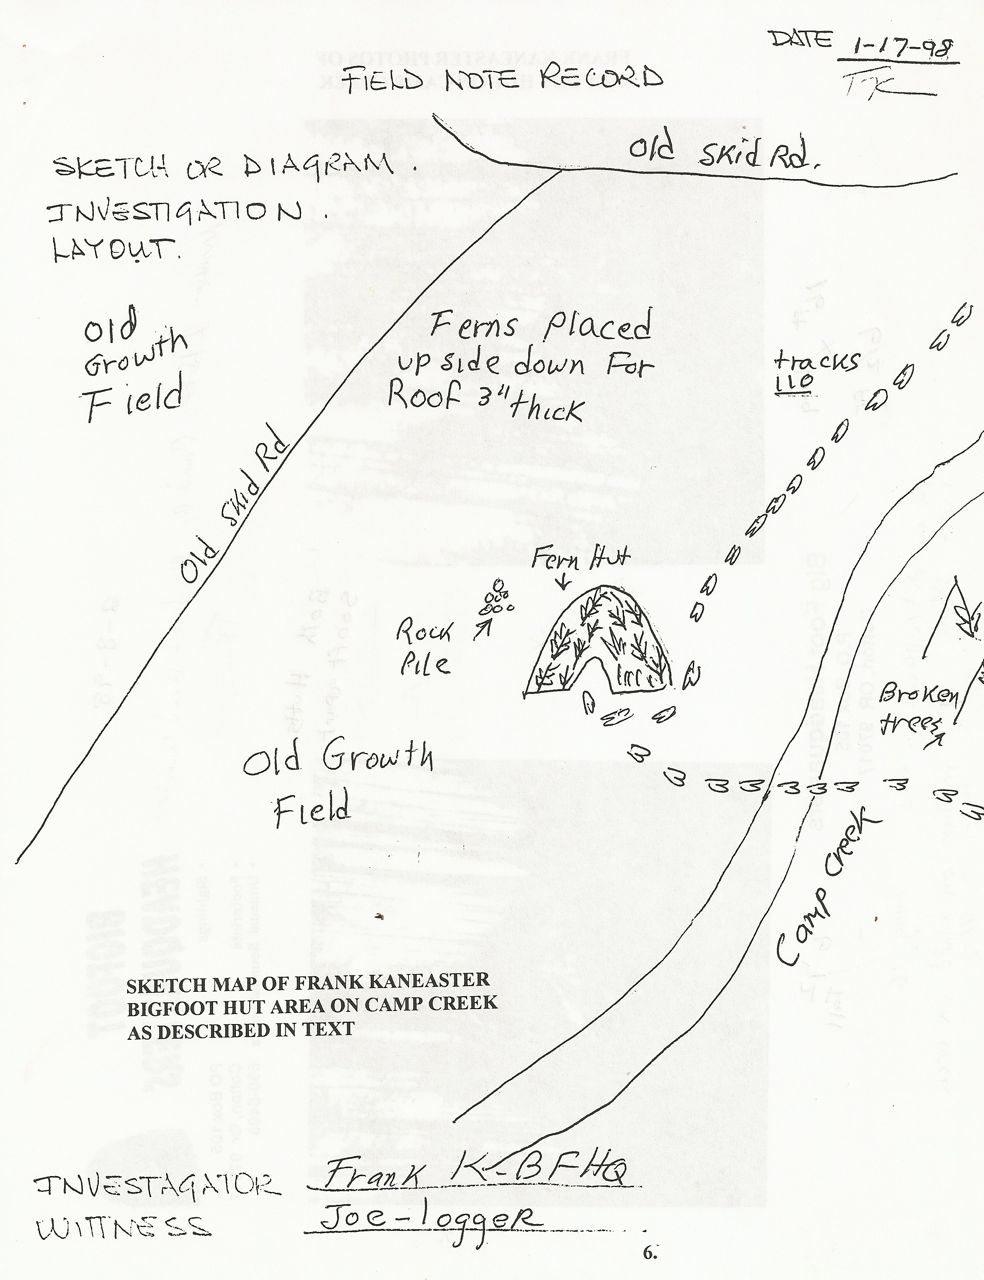 DATE 1-17-98
FIELD NOTE RECORD
Old Skid Rd.
SKETCH OR DIAGRAM.
INVESTIGATION.
LAYOUT.
Old
Growth
Field
Ferns Placed
up side down For
Roof 3" thick
tracks
110
Old Skid Rd
Fern Hut
Rock
Pile
Broken
trees
Old Growth
Field
Camp Creek
SKETCH MAP OF FRANK KANEASTER
BIGFOOT HUT AREA ON CAMP CREEK
AS DESCRIBED IN TEXT
INVESTAGATOR Frank K-BFHQ
WITTNESS Joe-loggeR
6.